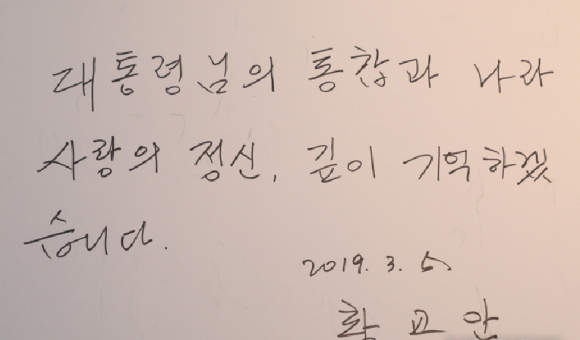 대통령님의 통합과 나라
사랑의 정신, 깊이 기억하겠
습니다.
2019. 3. 5
황교안